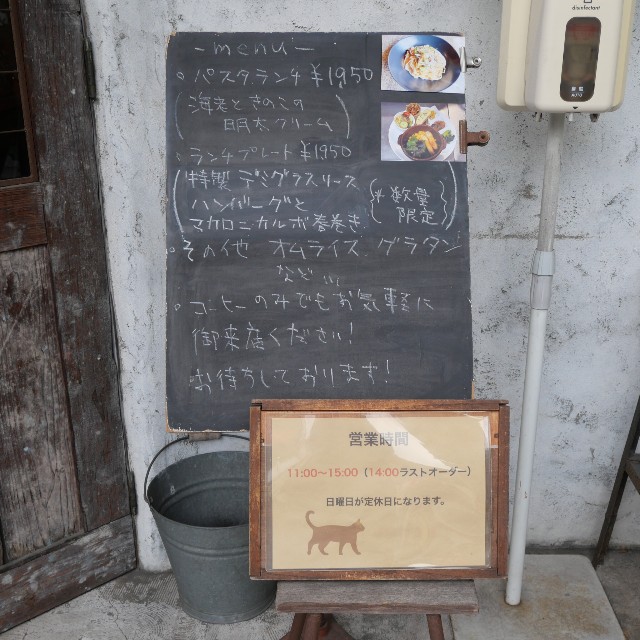 -menu-
。パスタランチ ¥1950
(海老ときのこの
明太クリーム)
・ランチプレート ¥1950
(特製 デミグラスソース
ハンバーグと
マカロニカルボ春巻き)
{※数量
限定}
・その他 オムライス グラタン
など...
・コーヒーのみでもお気軽に
御来店ください!
お待ちしております!
営業時間
11:00〜15:00(14:00ラストオーダー)
日曜日が定休日になります。